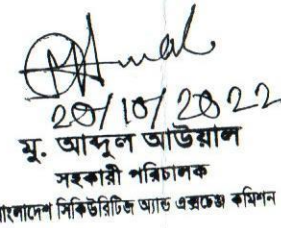 20/10/2022
মু. আব্দুল আউয়াল
সহকারী পরিচালক
বাংলাদেশ সিকিউরিটিজ অ্যান্ড এক্সচেঞ্জ কমিশন